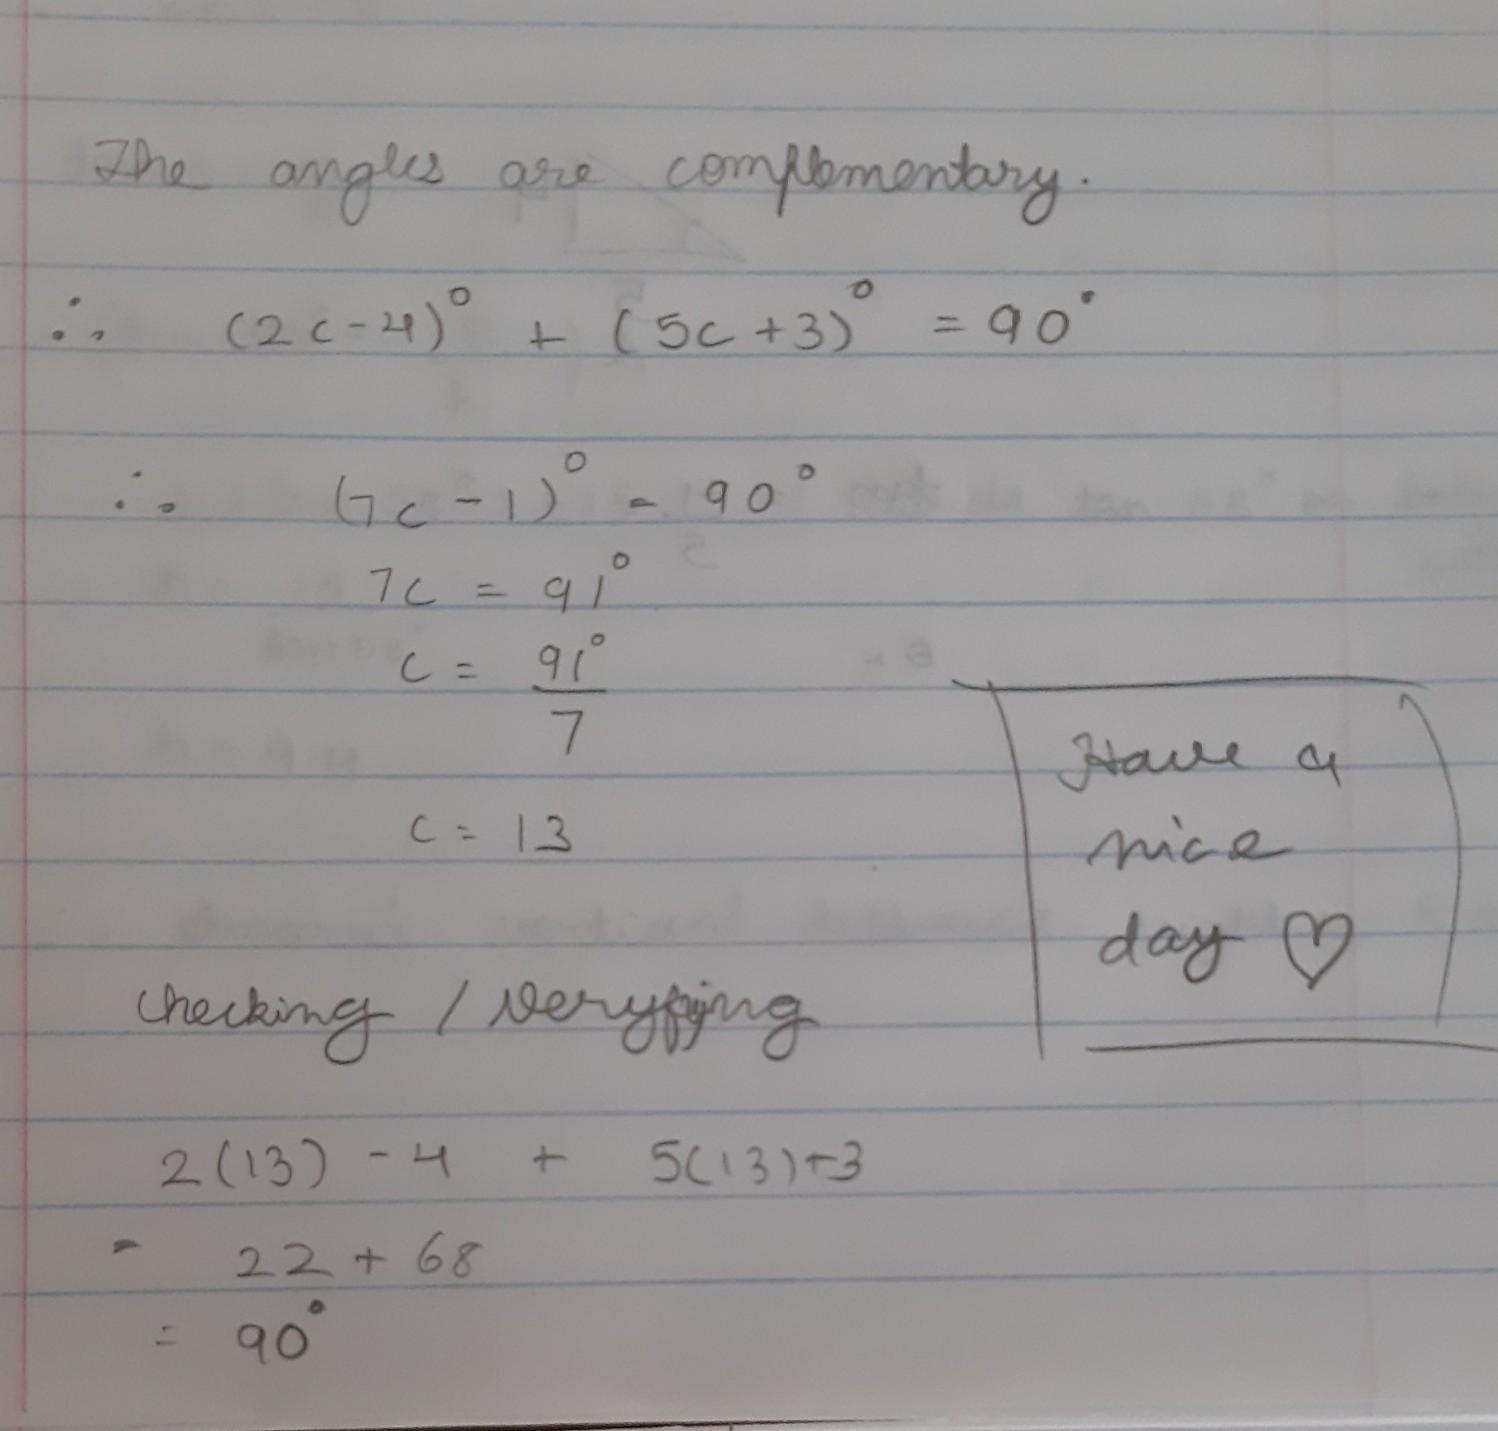 The angles are complementary.
∴ (2c-4)° + (5c+3)° = 90°
∴ (7c-1)° = 90°
7c = 91°
c = 91°
7
c = 13
Have a
nice
day ♡
checking / Veryfying
2(13) - 4 + 5(13)+3
= 22 + 68
= 90°